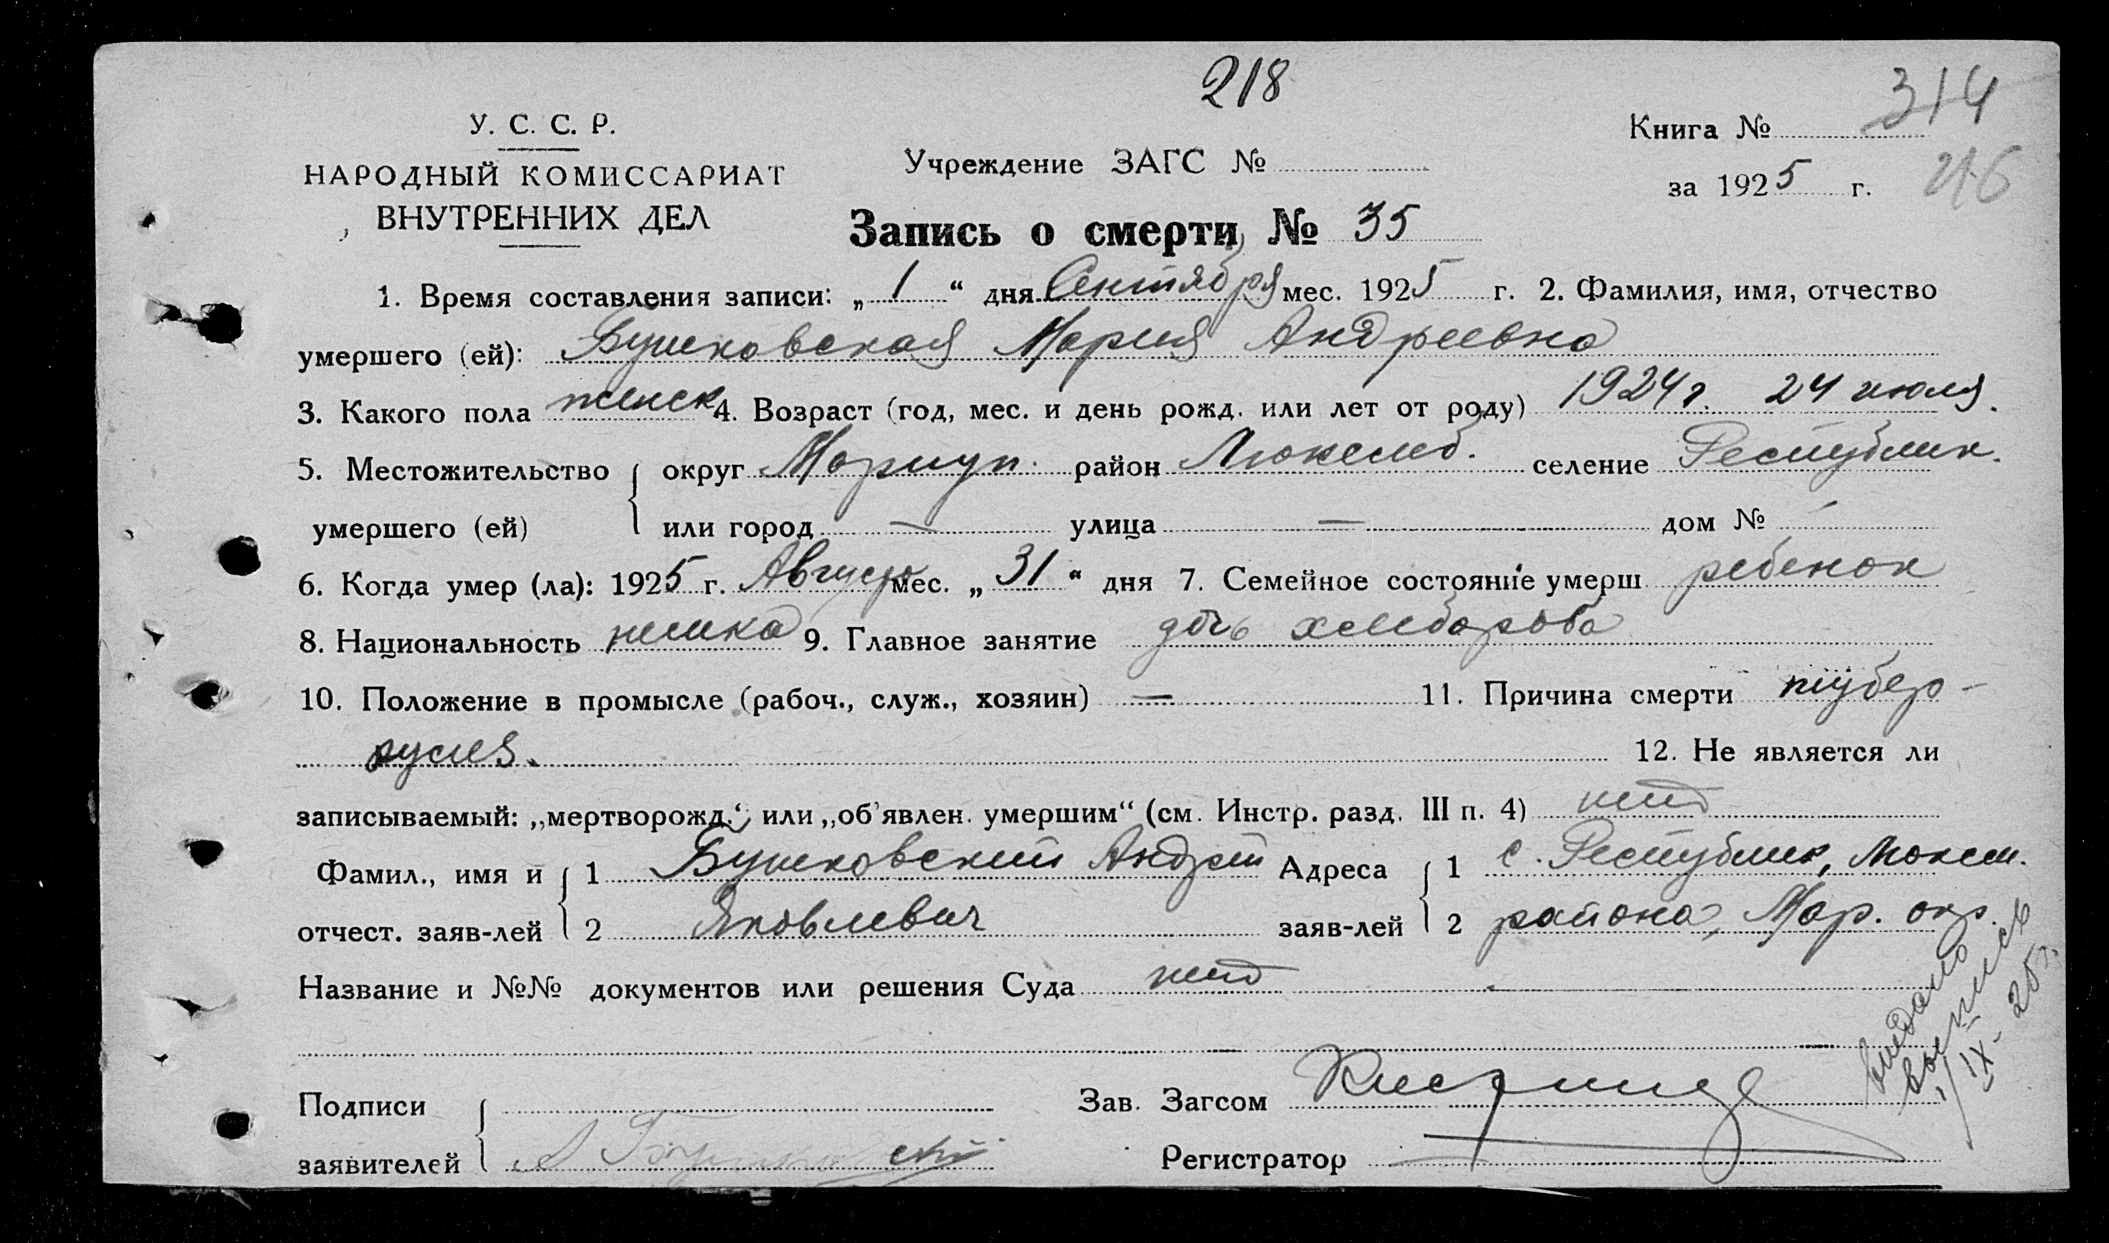 218
314
У. С. С. Р.
Книга №
НАРОДНЫЙ КОМИССАРИАТ
Учреждение ЗАГС №
за 1925 г. 216
ВНУТРЕННИХ ДЕЛ
Запись о смерти № 35
1. Время составления записи: „ 1 “ дня Сентября мес. 1925 г. 2. Фамилия, имя, отчество
умершего (ей): Бушковская Мария Андреевна
3. Какого пола женск 4. Возраст (год, мес. и день рожд. или лет от роду) 1924 г. 24 июля.
5. Местожительство { округ Мариуп. район Люксемб. селение Республик.
умершего (ей) или город — улица — дом № —
6. Когда умер (ла): 1925 г. Август мес. „ 31 “ дня 7. Семейное состояние умерш ребенок
8. Национальность немка 9. Главное занятие дочь хлебороба
10. Положение в промысле (рабоч., служ., хозяин) — 11. Причина смерти тубер-
12. Не является ли
записываемый: „мертворожд.“ или „об’явлен. умершим“ (см. Инстр. разд. III п. 4) нет
Фамил., имя и { 1 Бушковский Андрей Адреса { 1 с. Республик, Люксем.
отчест. заяв-лей 2 Яковлевич заяв-лей 2 района, Мар. окр.
Название и №№ документов или решения Суда нет
выдано
выпись
1/IX-25 г.
Подписи { Зав. Загсом
заявителей А Бушковский Регистратор